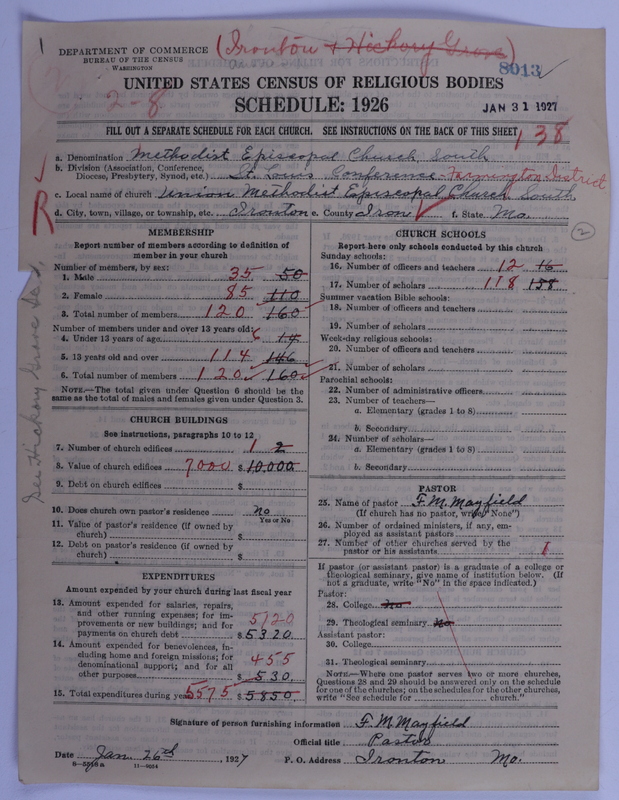 1
DEPARTMENT OF COMMERCE
BUREAU OF THE CENSUS
WASHINGTON
(Ironton + Hickory Grove)
8013
2-8
UNITED STATES CENSUS OF RELIGIOUS BODIES
SCHEDULE: 1926
JAN 31 1927
FILL OUT A SEPARATE SCHEDULE FOR EACH CHURCH. SEE INSTRUCTIONS ON THE BACK OF THIS SHEET
138
a. Denomination Methodist Episcopal Church, South
b. Division (Association, Conference, Diocese, Presbytery, Synod, etc.) St. Louis Conference - Farmington District
c. Local name of church Union Methodist Episcopal Church, South
R
d. City, town, village, or township, etc. Ironton e. County Iron f. State Mo.
2
MEMBERSHIP
Report number of members according to definition of member in your church
Number of members, by sex:
1. Male 35 50
2. Female 85 110
3. Total number of members 120 160
Number of members under and over 13 years old:
4. Under 13 years of age 6 14
5. 13 years old and over 114 146
6. Total number of members 120 160
NOTE.—The total given under Question 6 should be the same as the total of males and females given under Question 3.
See Hickory Grove
CHURCH BUILDINGS
See instructions, paragraphs 10 to 12
7. Number of church edifices 1 2
8. Value of church edifices 7000 $10,000
9. Debt on church edifices $
10. Does church own pastor's residence No
Yes or No
11. Value of pastor's residence (if owned by church) $
12. Debt on pastor's residence (if owned by church) $
EXPENDITURES
Amount expended by your church during last fiscal year
13. Amount expended for salaries, repairs, and other running expenses; for improvements or new buildings; and for payments on church debt 5120 $5320
14. Amount expended for benevolences, including home and foreign missions; for denominational support; and for all other purposes 455 $530
15. Total expenditures during year 5575 $5850
CHURCH SCHOOLS
Report here only schools conducted by this church
Sunday schools:
16. Number of officers and teachers 12 16
17. Number of scholars 118 158
Summer vacation Bible schools:
18. Number of officers and teachers
19. Number of scholars
Week-day religious schools:
20. Number of officers and teachers
21. Number of scholars
Parochial schools:
22. Number of administrative officers
23. Number of teachers—
a. Elementary (grades 1 to 8)
b. Secondary
24. Number of scholars—
a. Elementary (grades 1 to 8)
b. Secondary
PASTOR
25. Name of pastor F. M. Mayfield
(If church has no pastor, write "None")
26. Number of ordained ministers, if any, employed as assistant pastors
27. Number of other churches served by the pastor or his assistants 1
If pastor (or assistant pastor) is a graduate of a college or theological seminary, give name of institution below. (If not a graduate, write "No" in the space indicated.)
Pastor:
28. College No
29. Theological seminary No
Assistant pastor:
30. College
31. Theological seminary
NOTE.—Where one pastor serves two or more churches, Questions 28 and 29 should be answered only on the schedule for one of the churches; on the schedules for the other churches, write "See schedule for ........ church."
Signature of person furnishing information F. M. Mayfield
Official title Pastor
Date Jan. 26th, 1927 P. O. Address Ironton Mo.
11—9034